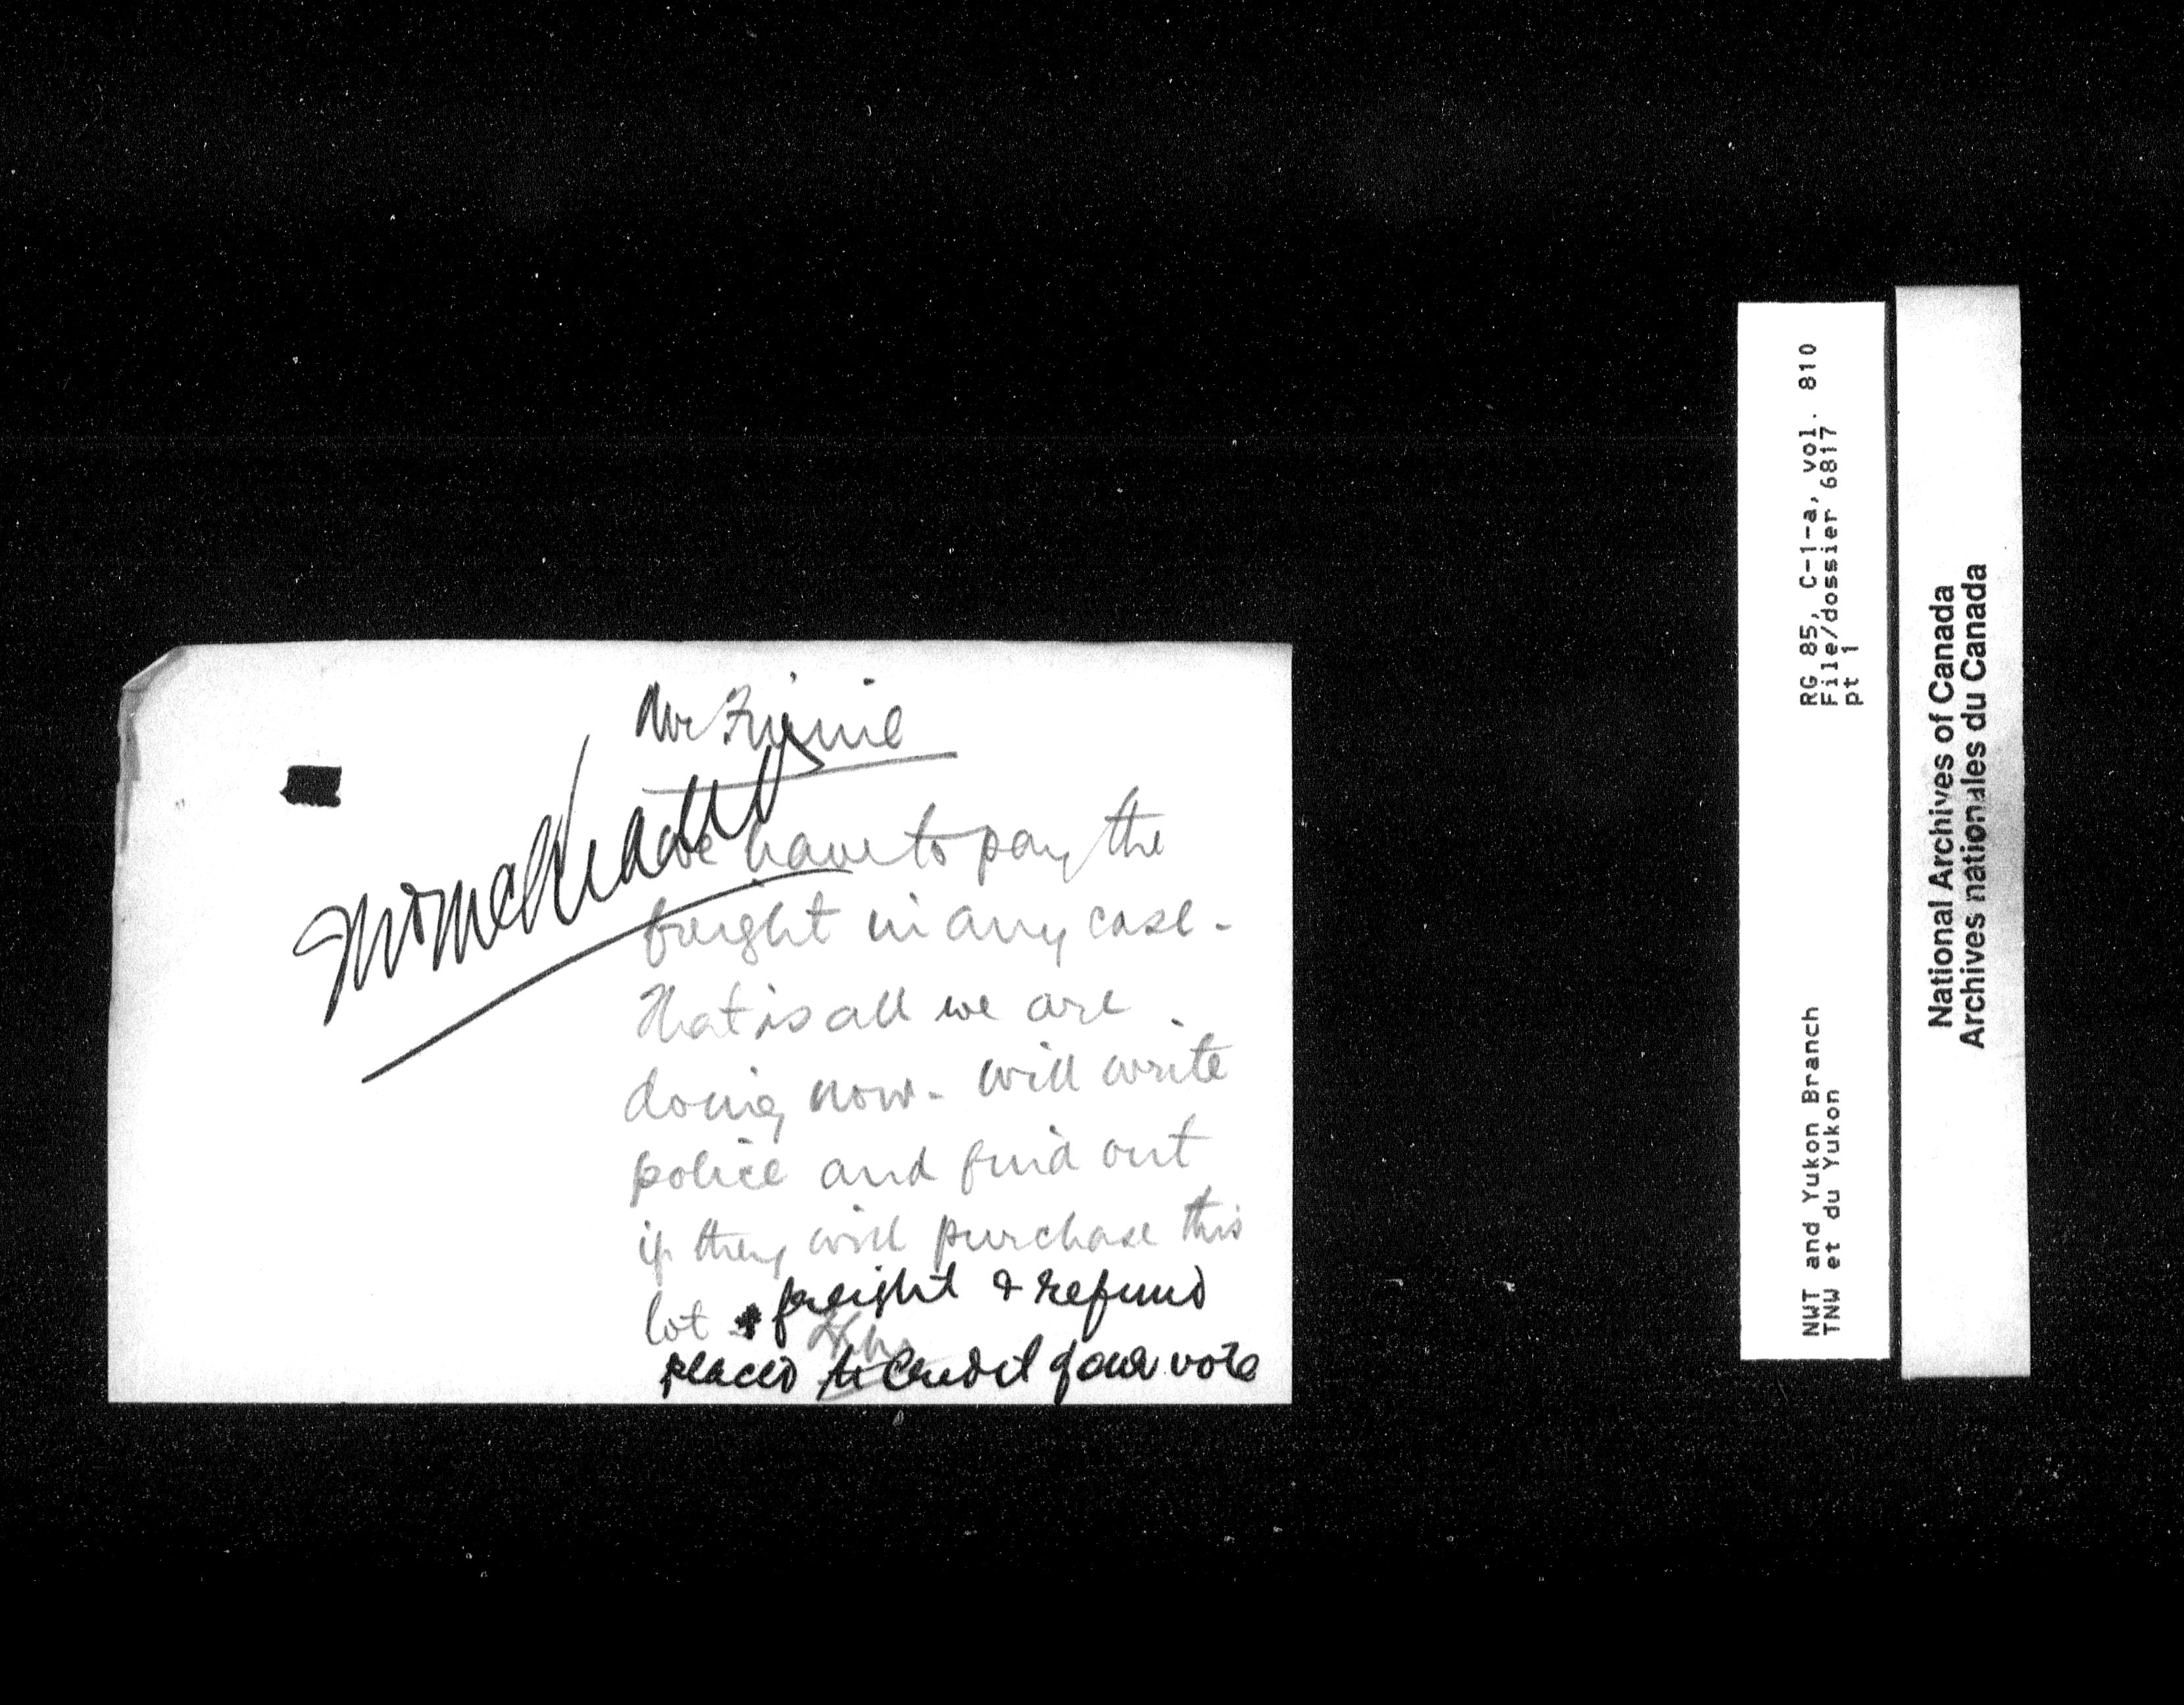 Mr Finnie
We have to pay the
freight in any case -
That is all we are
doing now - will write
police and find out
if they will purchase this
lot & freight & refund
placed to credit of our vote
RG 85, C-1-a, vol. 810
File/dossier 6817
pt 1
NWT and Yukon Branch
TNW et du Yukon
National Archives of Canada
Archives nationales du Canada